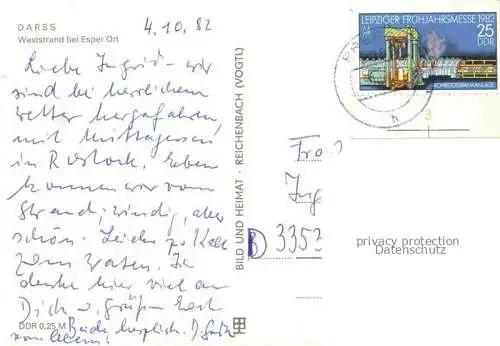 DARSS
Weststrand bei Esper Ort
4.10.82
Liebe Ingrid – wir
sind bei herrlichem
Wetter hergefahren,
mit Mittagessen
in Rostock. Eben
kommen wir vom
Strand; windig, aber
schön. Leider zu kalt
zum Baden. Ich
denke hier viel an
Dich u. grüßen Euch
Beide herzlich.
DDR 0,25 M
BILD UND HEIMAT · REICHENBACH (VOGTL)
LEIPZIGER FRÜHJAHRSMESSE 1982
25
DDR
h
3
Ing
D 3353
privacy protection
Datenschutz